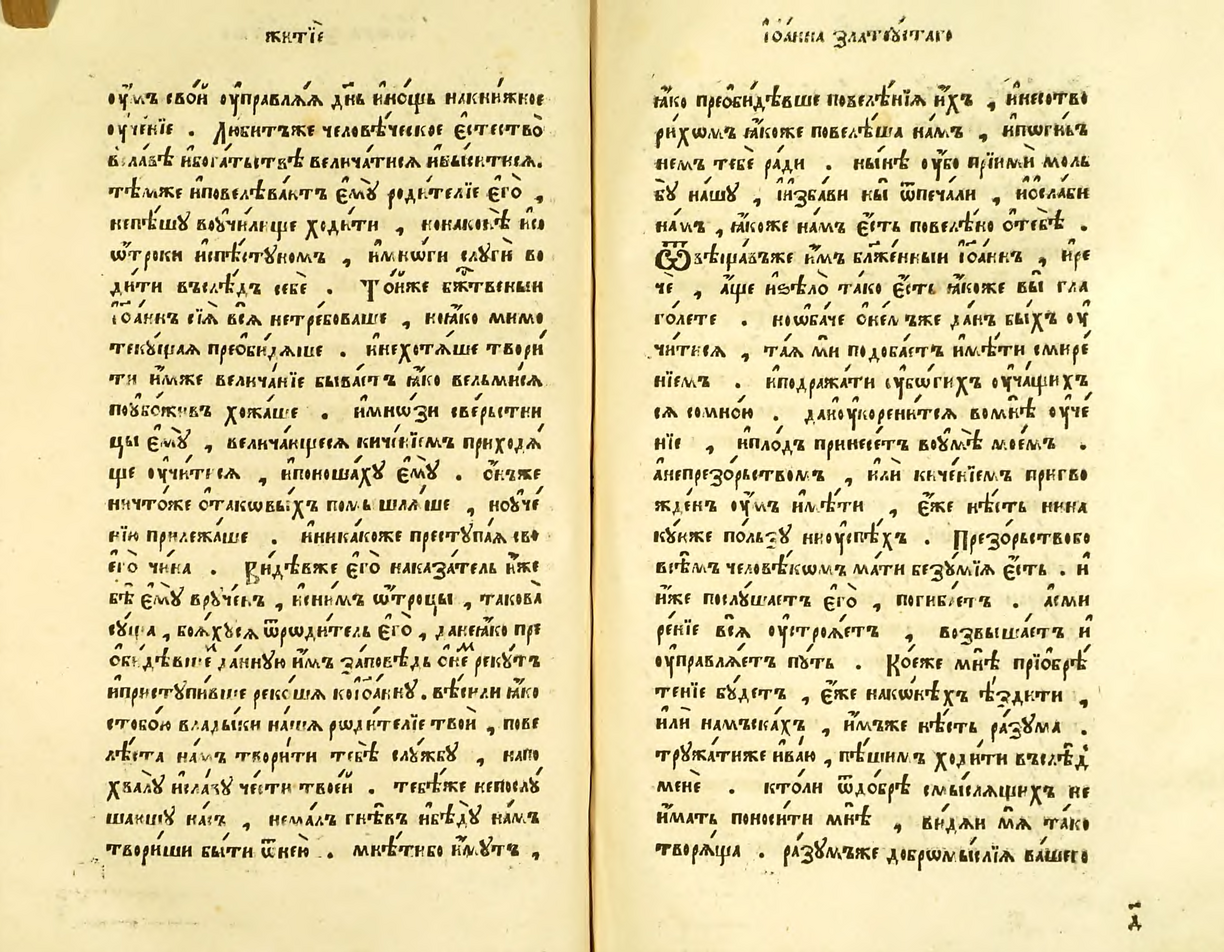 житїѐ
оу҆мъ сво́й оу҆правлѧѧ дн҃ь и҆но́щь накни́жное
оу҆че́нїе . Лю́битъже человѣ́ческое є҆стество̀
в̾сла́вѣ и҆бога́тьствѣ велича́тисѧ и҆вы́ситисѧ.
тѣ́мже и҆повелѣва́ютъ є҆мꙋ̀ роди́телїе є҆го̀ ,
непѣ́шꙋ воучи́лище ходи́ти , нонако́нѣ и҆со
ѿтроки и҆спѣ́стꙋномъ , и҆мнѡ́ги слꙋгѝ во
ди́ти въслѣ́дъ себѐ . То́йже бж҃тве́ныи
і҆ѡа́ннъ сїѧ̀ всѧ̀ нетре́боваше , но꙳ꙗ҆́ко мимо
текꙋ́щаѧ преѡби́дѧше . и҆нехотѧ́ше твори́
ти и҆́мже велича́нїе быва́етъ ꙗ҆́ко ве́льмисѧ
поꙋбо́живъ хожа́ше . и҆мнѡ́зи све́рьстни
цы є҆мꙋ̀ , велича́ющесѧ киче́нїемъ приходѧ́
ще оу҆чи́тисѧ , и҆поноша́хꙋ є҆мꙋ̀ . ѻ҆́нъже
ничто́же ѻ҆таковы́хъ помышлѧ́ше , ноуче́
нїю прилежа́ше . и҆ника́коже престꙋпа́ѧ сво
его̀ чи́на . Ви́дѣвже є҆го̀ наказа́тель и҆́же
бѣ̀ є҆мꙋ̀ врꙋче́нъ , и҆сни́мъ ѿтроцы , такова̀
сꙋ́ща , боѧ́хꙋсѧ ѿроди́тель є҆го̀ , дане꙳ꙗ҆́ко пре
ѡби́дѣвше да́ннꙋю и҆́мъ за́повѣдь ѻ҆не́м рекꙋ́тъ
и҆пристꙋпи́вше реко́шѧ коі҆ѡа́ннꙋ . вѣ́сили ꙗ҆́ко
стобо́ю влады́ки на́шѧ роди́телїе твоѝ , пове
лѣ́ста на́мъ твори́ти тебѣ̀ слꙋ́жбꙋ , напо
хвалꙋ̀ и҆сла́вꙋ че́сти твое́й . тебѣ́же непослꙋ́
шавшꙋ на́съ , нема́лъ гнѣ́въ и҆бѣдꙋ̀ на́мъ
твори́ши бы́ти ѿнею̀ . мнѣ́тибо и҆́мꙋтъ ,
І҆ѡа́нна златоꙋ́стаго
ꙗ҆́ко преѡби́дѣвше повелѣ́нїѧ и҆́хъ , и҆несотво
ри́хомъ ꙗ҆́коже повелѣ́ша на́мъ , и҆поги́нь
немъ тебѐ ра́ди . ны́нѣ оу҆́бо прїимѝ моль
бꙋ̀ на́шꙋ , и҆и҆зба́ви ны̀ ѿпеча́ли , и҆ѻ҆сла́би
на́мъ , ꙗ҆́коже на́мъ є҆́сть повелѣ́но ѻ҆тебѣ̀ .
Ѿвѣща́въже и҆́мъ бл҃же́нныи і҆ѡа́ннъ , и҆ре
чѐ , а҆́ще и҆ѕѣлѡ̀ та́ко є҆́сть ꙗ҆́коже вы̀ гла
го́лете . ноѻба́че ѻ҆не́лѣже да́нъ бы́хъ оу҆
чи́тисѧ , та́ѧ мѝ подоба́етъ и҆мѣ́ти смире́
нїемъ . и҆подража́ти ᲂу҆бо́гихъ оу҆ча́щихъ
сѧ сомно́ю . даноукорени́тсѧ вомнѣ̀ оу҆че́
нїе , и҆пло́дъ принесе́тъ воумѣ̀ мое́мъ .
а҆непрезо́рьствомъ , и҆лѝ киче́нїемъ пригво
жде́нъ оу҆́мъ и҆мѣ́ти , є҆́же нѣ́сть нина
кꙋ́юже по́льзꙋ нноуспѣ́хъ . Презо́рьствобо
всѣ́мъ человѣ́комъ ма́ти безꙋ́мїѧ є҆́сть . и҆
и҆́же послꙋ́шаетъ є҆го̀ , поги́бнетъ . а҆сми
ре́нїе всѧ̀ оу҆строѧ́етъ , возвыша́етъ и҆
оу҆правлѧ́етъ пꙋ́ть . Ко́еже мнѣ̀ прїѡбрѣ́
тенїе бꙋ́детъ , є҆́же нако́нѣхъ ѣ҆́здити ,
и҆лѝ намъска́хъ , и҆́мъже нѣ́сть ра́зꙋма .
трꙋжа́тиже и҆ва́ю , пѣ́шимъ ходи́ти въслѣ́д
менѐ . кто́ли ѿдобрѣ̀ смы́слѧщихъ не
и҆́мать поноси́ти мнѣ̀ , ви́дѧи мѧ̀ та́ко
творѧ́ща . ра́зꙋмъже добромы́слїѧ ва́шего
д҃